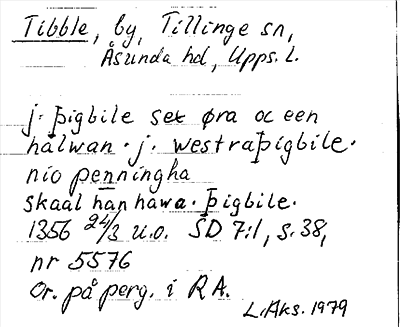 Tibble, by, Tillinge sn,
Åsunda hd, Upps. l.
j. þigbile sex øra oc een
halwan. j. westraþigbile.
nio penningha
skaal han hawa. þigbile.
1356 24/3 u.o. SD 7:1, s. 38,
nr 5576
Or. på perg. i RA.
L. Aks. 1979